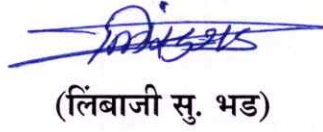 (लिंबाजी सु. भड)